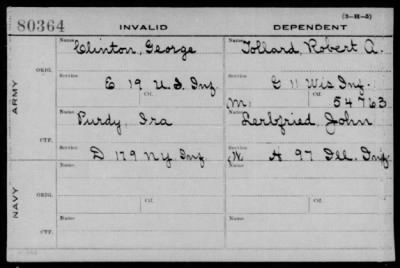 (3-H-3)
80364 INVALID DEPENDENT
Name Name
Clinton, George Tollard, Robert A.
ARMY
ORIG.
Service Service
E 19 U.S. Inf. G 11 Wis Inf.
Ctf. Ctf.
M. 54763
Name Name
Purdy, Ira Lerbfried, John
CTF.
Service Service
D 179 NY Inf. W. A 97 Ill. Inf.
NAVY
ORIG.
Name Name
Ctf. Ctf.
CTF.
Name Name